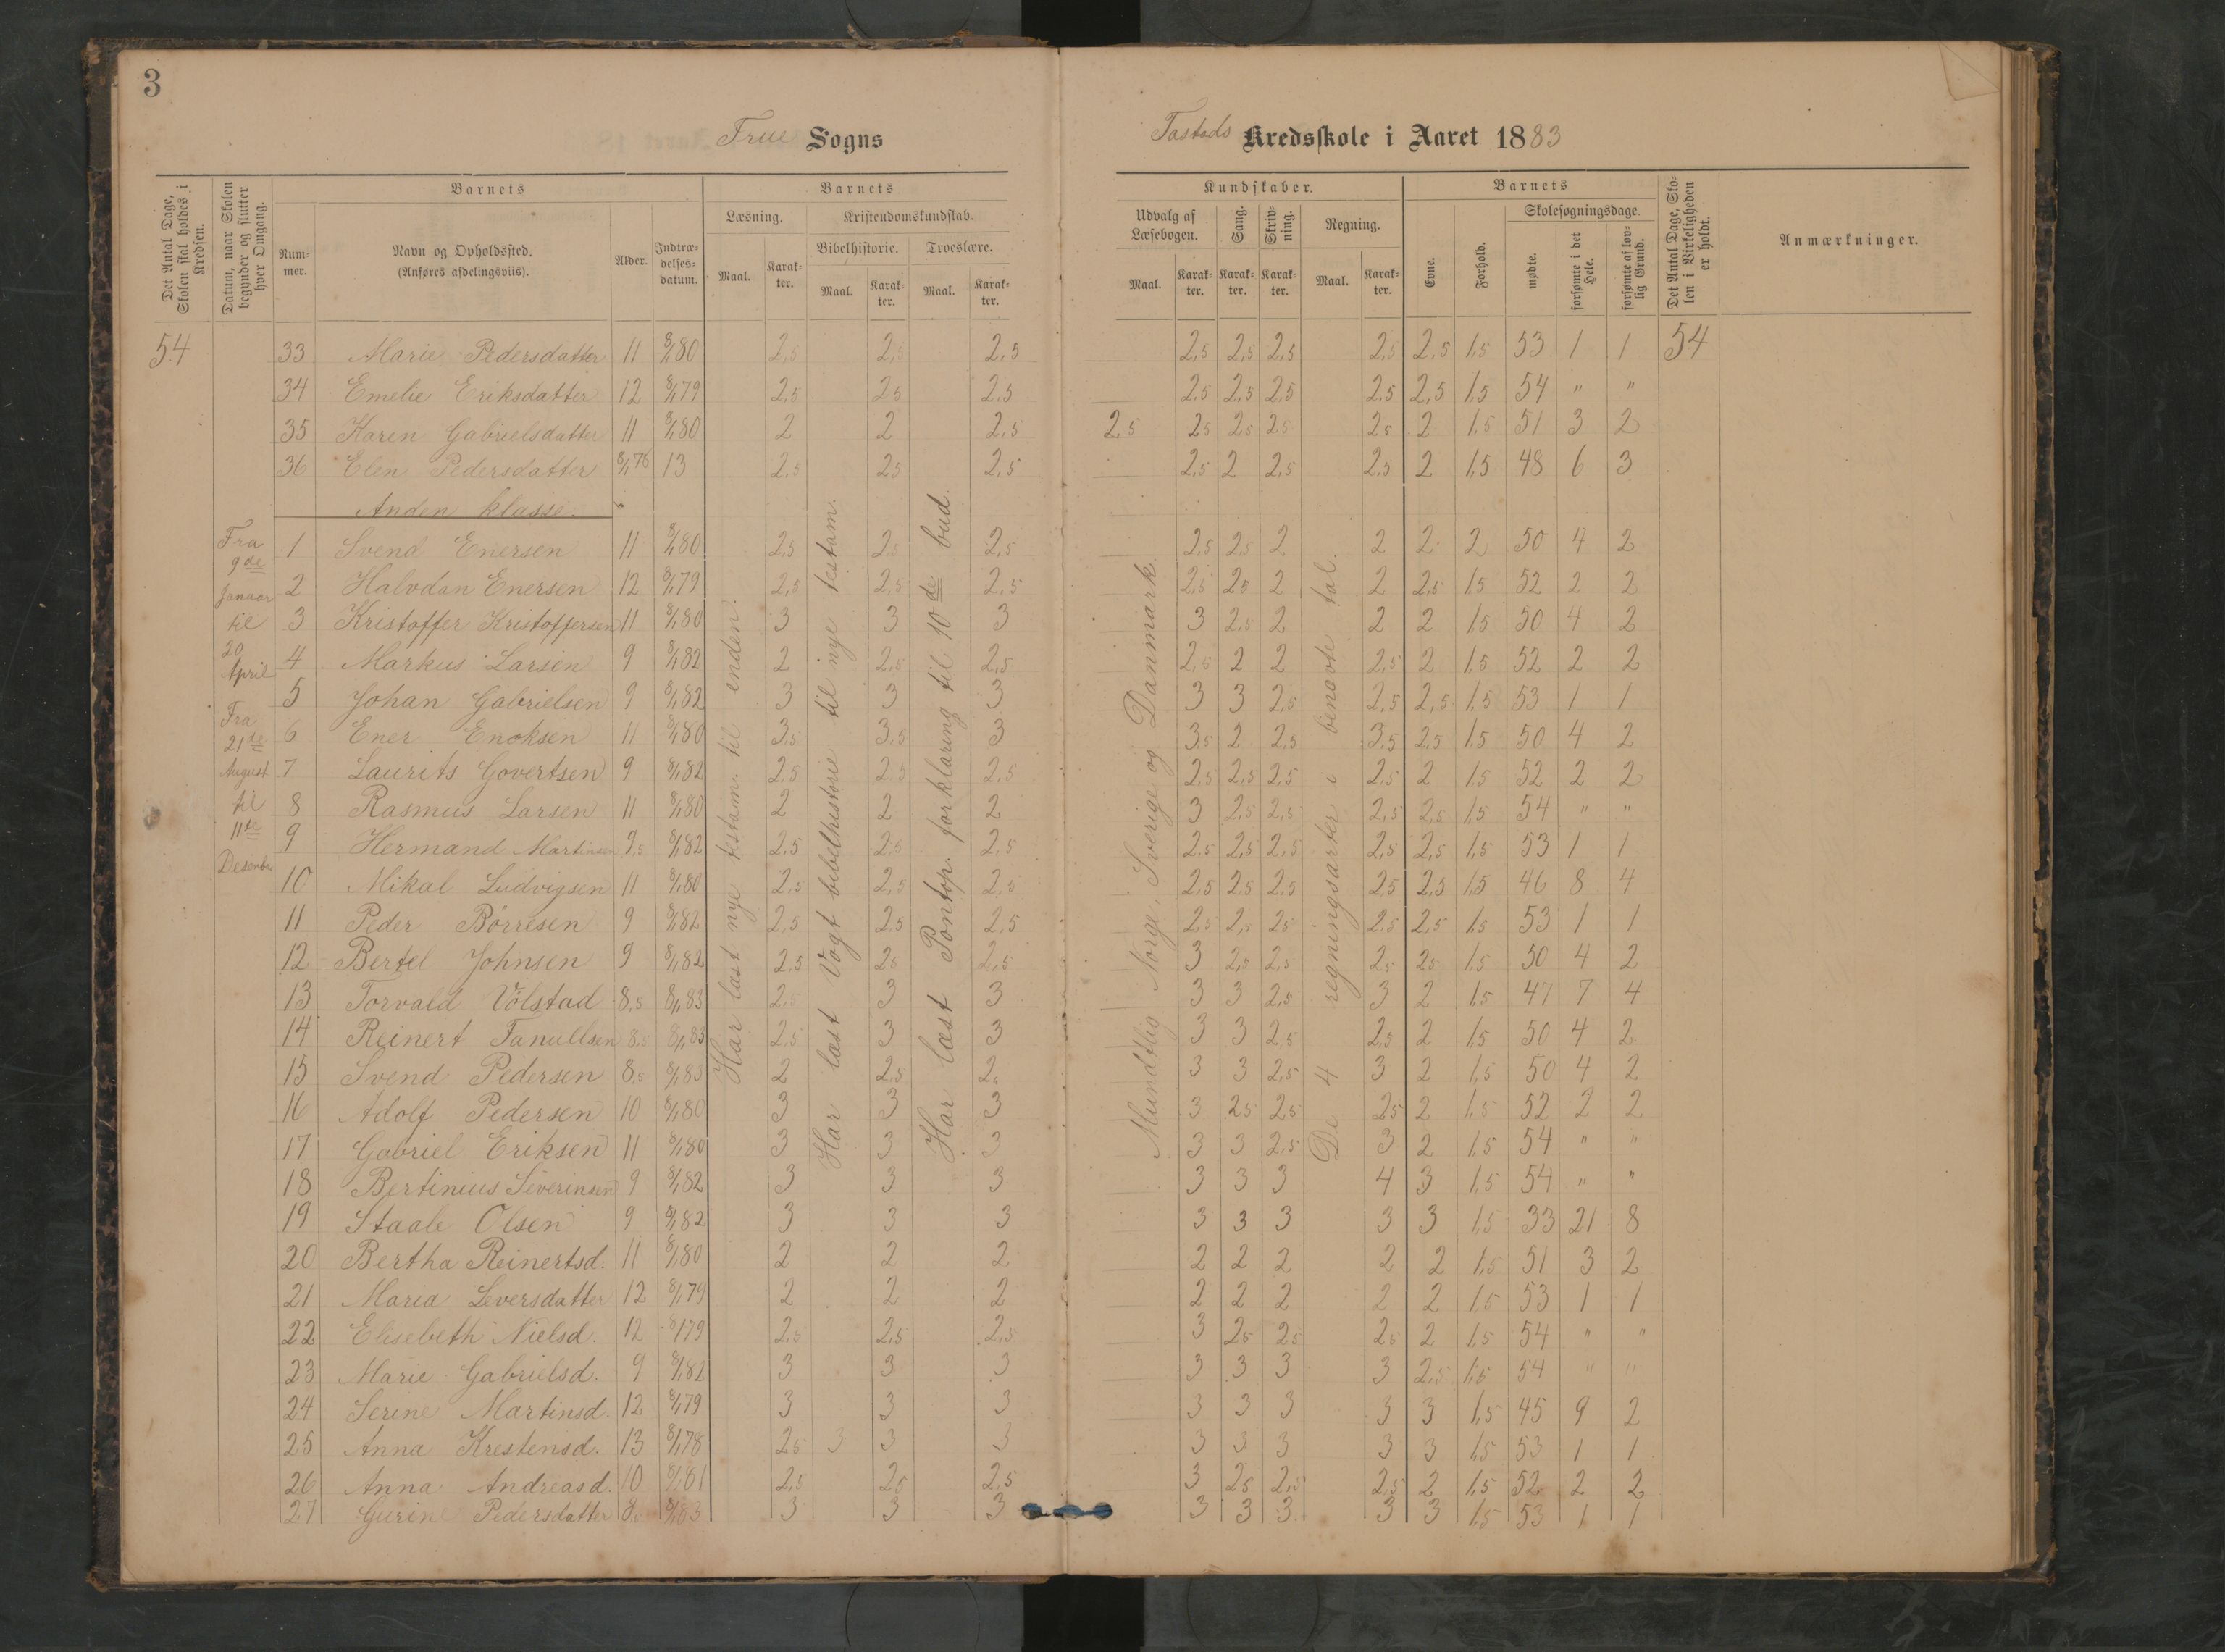 3
Frue Sogns
Tastads Kredsskole i Aaret 1883
Det Antal Dage, Skolen skal holdes i Kredsen.
Datum, naar Skolen begynder og slutter hver Omgang.
Barnets
Nummer.
Navn og Opholdssted.
(Anføres afdelingsviis).
Alder.
Indtrædelsesdatum.
Barnets
Læsning.
Maal.
Karakter.
Kristendomskundskab.
Bibelhistorie.
Maal.
Karakter.
Troeslære.
Maal.
Karakter.
Kundskaber.
Udvalg af Læsebogen.
Maal.
Karakter.
Sang.
Karakter.
Skrivning.
Karakter.
Regning.
Maal.
Karakter.
Barnets
Evne.
Forhold.
Skolesøgningsdage.
mødte.
forsømte i det Hele.
forsømte af lovlig Grund.
Det Antal Dage, Skolen i Virkeligheden er holdt.
Anmærkninger.
54 33 Marie Pedersdatter 11 8/1 80 2,5 2,5 2,5 2,5 2,5 2,5 2,5 2,5 1,5 53 1 1 54
34 Emelie Eriksdatter 12 8/1 79 2,5 2,5 2,5 2,5 2,5 2,5 2,5 2,5 1,5 54 " "
35 Karen Gabrielsdatter 11 8/1 80 2 2 2,5 2,5 2,5 2,5 2,5 2,5 2 1,5 51 3 2
36 Elen Pedersdatter 8/1 78 13 2,5 2,5 2,5 2,5 2 2,5 2,5 2 1,5 48 6 3
Anden klasse.
Fra 9de Januar til 20 April
Fra 21de August til 11te Desember
Har læst nye testam. til enden.
Har læst Vogt bibelhistorie til nye testam.
Har læst Pontop. forklaring til 10de bud.
Mundtlig Norge, Sverige og Danmark.
De 4 regningsarter i benævte tal.
1 Svend Enersen 11 8/1 80 2,5 2,5 2,5 2,5 2,5 2 2 2 2 50 4 2
2 Halvdan Enersen 12 8/1 79 2,5 2,5 2,5 2,5 2,5 2 2 2,5 1,5 52 2 2
3 Kristoffer Kristoffersen 11 8/1 80 3 3 3 3 2,5 2 2 2 1,5 50 4 2
4 Markus Larsen 9 8/1 82 2 2,5 2,5 2,5 2 2 2,5 2 1,5 52 2 2
5 Johan Gabrielsen 9 8/1 82 3 3 3 3 3 2,5 2,5 2,5 1,5 53 1 1
6 Ener Enoksen 11 8/1 80 3,5 3,5 3 3,5 2 2,5 3,5 2,5 1,5 50 4 2
7 Laurits Govertsen 9 8/1 82 2,5 2,5 2,5 2,5 2,5 2,5 2,5 2 1,5 52 2 2
8 Rasmus Larsen 11 8/1 80 2 2 2 3 2,5 2,5 2,5 2,5 1,5 54 " "
9 Hermand Martinsen 9,5 8/1 82 2,5 2,5 2,5 2,5 2,5 2,5 2,5 2,5 1,5 53 1 1
10 Mikal Ludvigsen 11 8/1 80 2,5 2,5 2,5 2,5 2,5 2,5 2,5 2,5 1,5 46 8 4
11 Peder Børresen 9 8/1 82 2,5 2,5 2,5 2,5 2,5 2,5 2,5 2,5 1,5 53 1 1
12 Bertel Johnsen 9 8/1 82 2,5 2,5 2,5 3 2,5 2,5 2,5 2,5 1,5 50 4 2
13 Torvald Völstad 8,5 8/1 83 2,5 3 3 3 3 2,5 3 2 1,5 47 7 4
14 Reinert Tanullsen 8,5 8/1 83 2,5 3 3 3 3 2,5 2,5 2 1,5 50 4 2
15 Svend Pedersen 8,5 8/1 83 2 2,5 2 3 3 2,5 3 2 1,5 50 4 2
16 Adolf Pedersen 10 8/1 80 3 3 3 3 2,5 2,5 2,5 2 1,5 52 2 2
17 Gabriel Eriksen 11 8/1 80 3 3 3 3 3 2,5 3 2 1,5 54 " "
18 Bertinius Severinsen 9 8/1 82 3 3 3 3 3 3 4 3 1,5 54 " "
19 Staale Olsen 9 8/1 82 3 3 3 3 3 3 3 3 1,5 33 21 8
20 Bertha Reinertsd. 11 8/1 80 2 2 2 2 2 2 2 2 1,5 51 3 2
21 Maria Leversdatter 12 8/1 79 2 2 2 2 2 2 2 2 1,5 53 1 1
22 Elisebeth Nielsd. 12 8/1 79 2,5 2,5 2,5 3 2,5 2,5 2,5 2 1,5 54 " "
23 Marie Gabrielsd. 9 8/1 82 3 3 3 3 3 3 3 2,5 1,5 54 " "
24 Serine Martinsd. 12 8/1 79 3 3 3 3 3 3 3 3 1,5 45 9 2
25 Anna Krestensd. 13 8/1 78 2,5 3 3 3 3 3 3 3 3 1,5 53 1 1
26 Anna Andreasd. 10 8/1 81 2,5 2,5 2,5 3 2,5 2,5 2,5 2 1,5 52 2 2
27 Gurine Pedersdatter 8 8/1 83 3 3 3 3 3 3 3 3 1,5 53 1 1